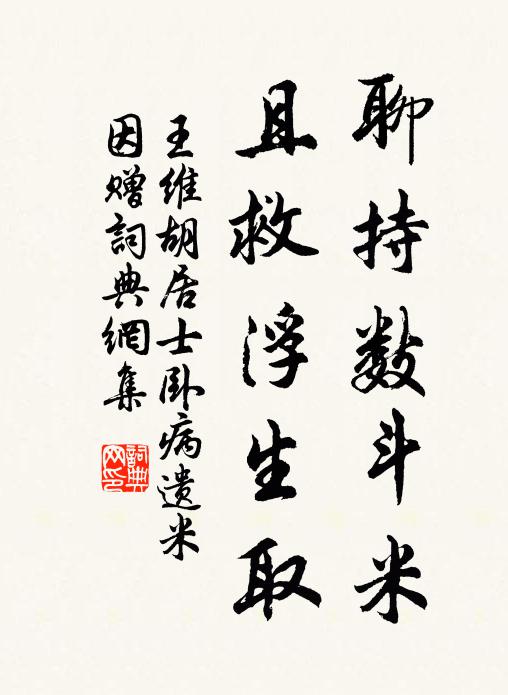 聊持数斗米
且救浮生取
王维胡居士卧病遗米
因赠詞典網集
詞典
网印